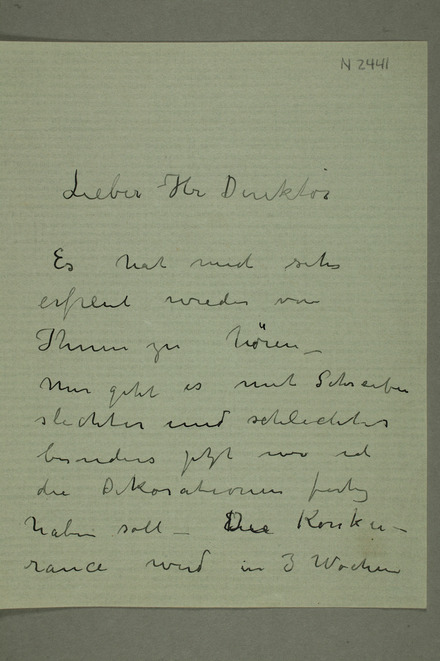 N 2441
Lieber Hr Direktör
Es hat mich sehr
erfreut wieder von
Ihnen zu hören _
Mir geht es mit Schreiben
slechter und schlechter
besonders jetzt wo ich
die Dekorationen fertig
haben soll _ Die Konku-
rance wird in 3 Wochen